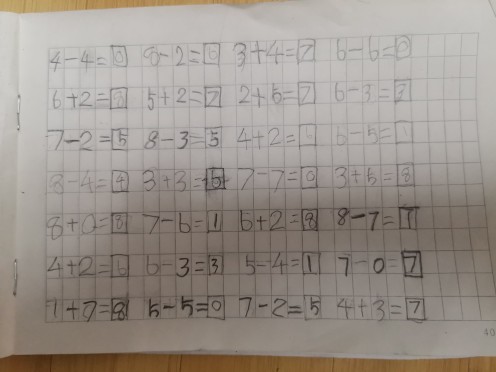 4-4=0 8-2=6 3+4=7 6-6=0
6+2=8 5+2=7 2+5=7 6-3=3
7-2=5 8-3=5 4+2=6 6-5=1
8-4=4 3+3=6 7-7=0 3+5=8
8+0=8 7-6=1 6+2=8 8-7=1
4+2=6 6-3=3 5-4=1 7-0=7
1+7=8 5-5=0 7-2=5 4+3=7